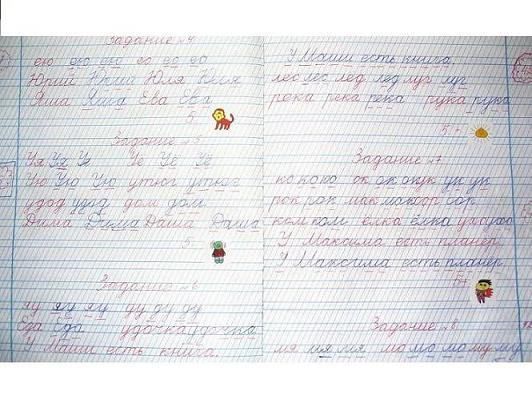 Задание №4
ею ею ею ео ео ео
Юрий Юлия Юля Юля
Яша Яша Ева Ева
5
Задание №5
Уя Уя Уе Уе Уё Уё
Ую Ую Ую утюг утюг
удод удод дом дом
Дима Дима Даша Даша
5
Задание №6
яу яу яу ду ду ду
Еда Еда удочка удочка
У Маши есть книга.
У Маши есть книга.
лес лес лед лед луг луг
река река река рука рука
5+
Задание №7
ко ко ко ок ок ук ук ук
рок рок мак сор
ком ком елка ёлка
У Максима есть планер.
У Максима есть планер.
5+
Задание №8
мя мя мя мо мо мо му му